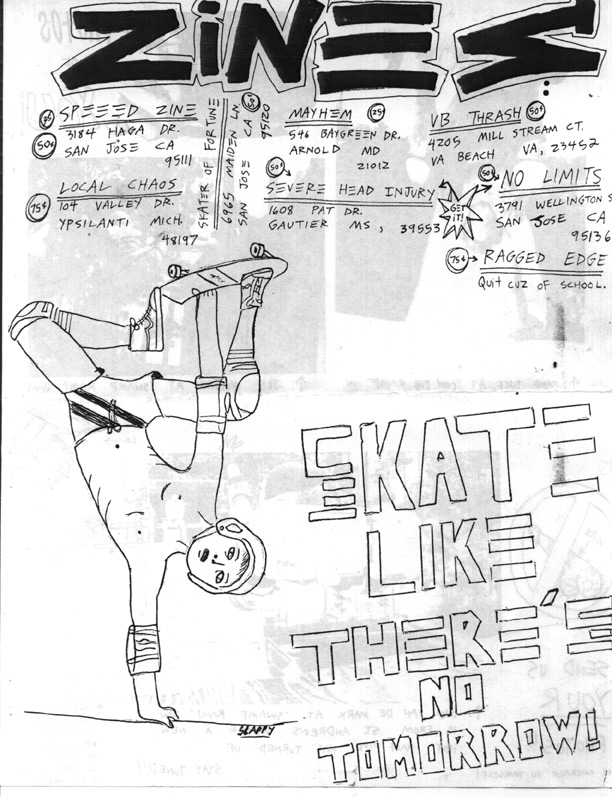 ZINES
75¢ SPEEED ZINE
50¢ 3184 HAGA DR.
SAN JOSE CA
95111
75¢ LOCAL CHAOS
104 VALLEY DR.
YPSILANTI MICH.
48197
SKATER OF FORTUNE 50¢
6965 MAIDEN LN.
SAN JOSE CA
95120
MAYHEM 25¢
546 BAYGREEN DR.
ARNOLD MD
21012
50¢ SEVERE HEAD INJURY
1608 PAT DR.
GAUTIER MS, 39553
VB THRASH 50¢
4205 MILL STREAM CT.
VA BEACH VA, 23452
GET IT!
50¢ NO LIMITS
3791 WELLINGTON S
SAN JOSE CA
95136
75¢ RAGGED EDGE
QUIT CUZ OF SCHOOL.
SKATE
LIKE
THERE'S
NO
TOMORROW!
SLAPPY